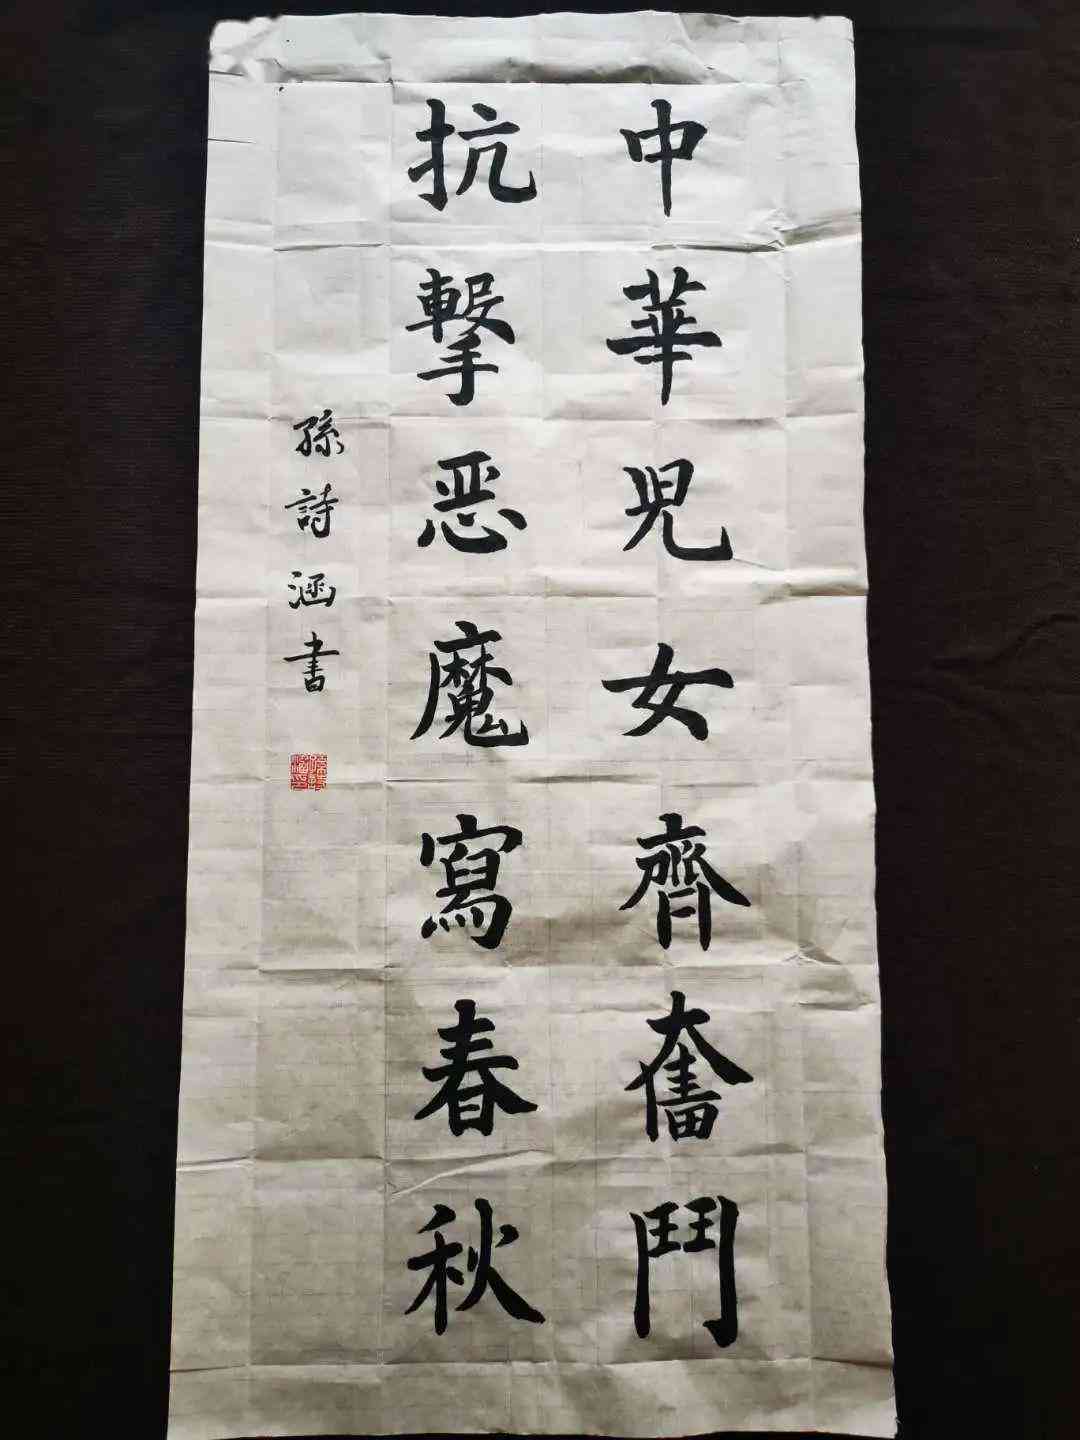 中華兒女齊奮鬥
抗擊恶魔寫春秋
孫詩涵書